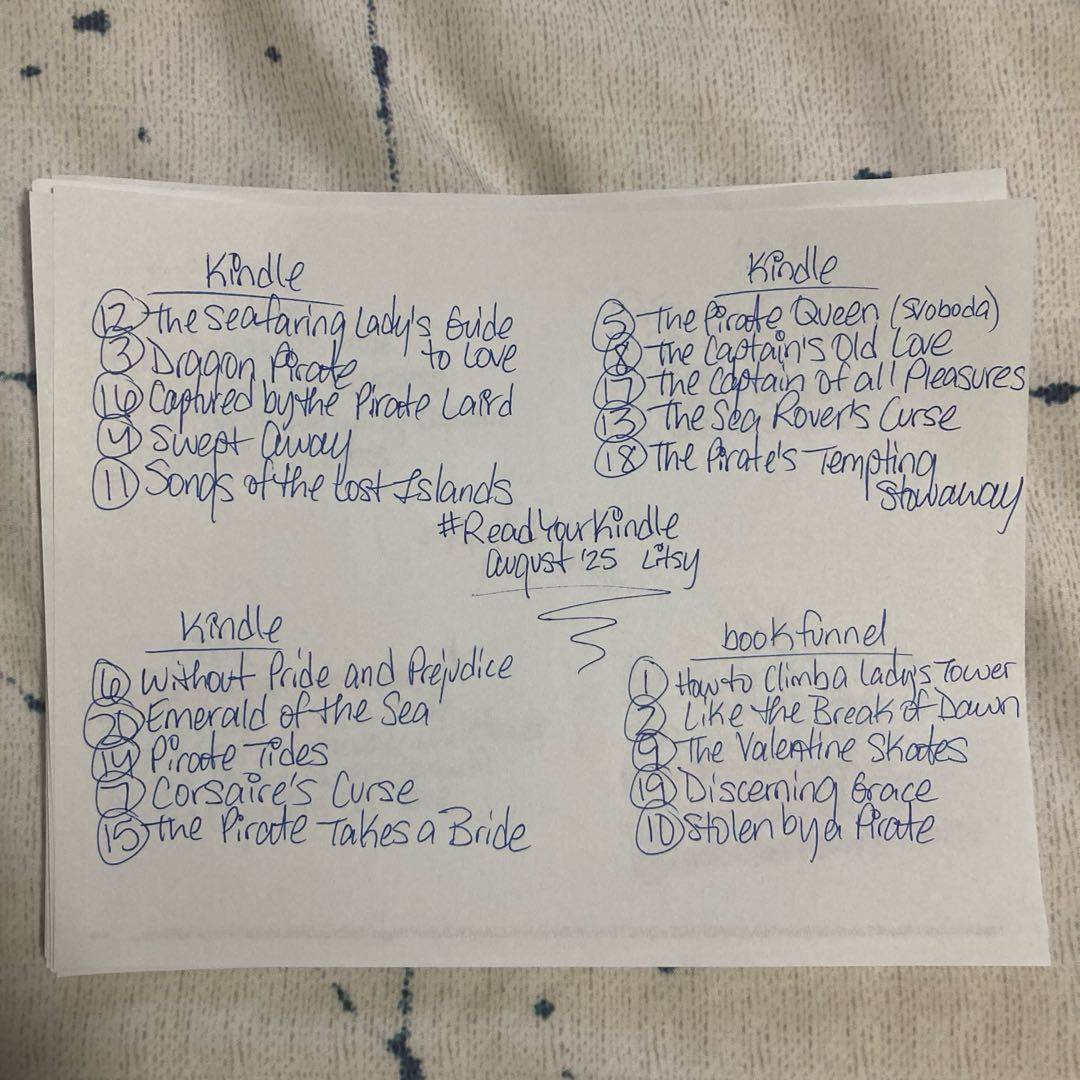 Kindle
12 The Seafaring Lady's Guide
to Love
3 Dragon Pirate
16 Captured by the Pirate Laird
4 Swept Away
11 Songs of the Lost Islands
Kindle
5 The Pirate Queen (Svoboda)
8 The Captain's Old Love
17 The Captain of all Pleasures
13 The Sea Rover's Curse
18 The Pirate's Tempting
Stowaway
#ReadYourKindle
August '25 Litsy
Kindle
6 Without Pride and Prejudice
20 Emerald of the Sea
14 Pirate Tides
7 Corsaire's Curse
15 The Pirate Takes a Bride
bookfunnel
1 How to Climb a Lady's Tower
2 Like the Break of Dawn
9 The Valentine Skates
19 Discerning Grace
10 Stolen by a Pirate